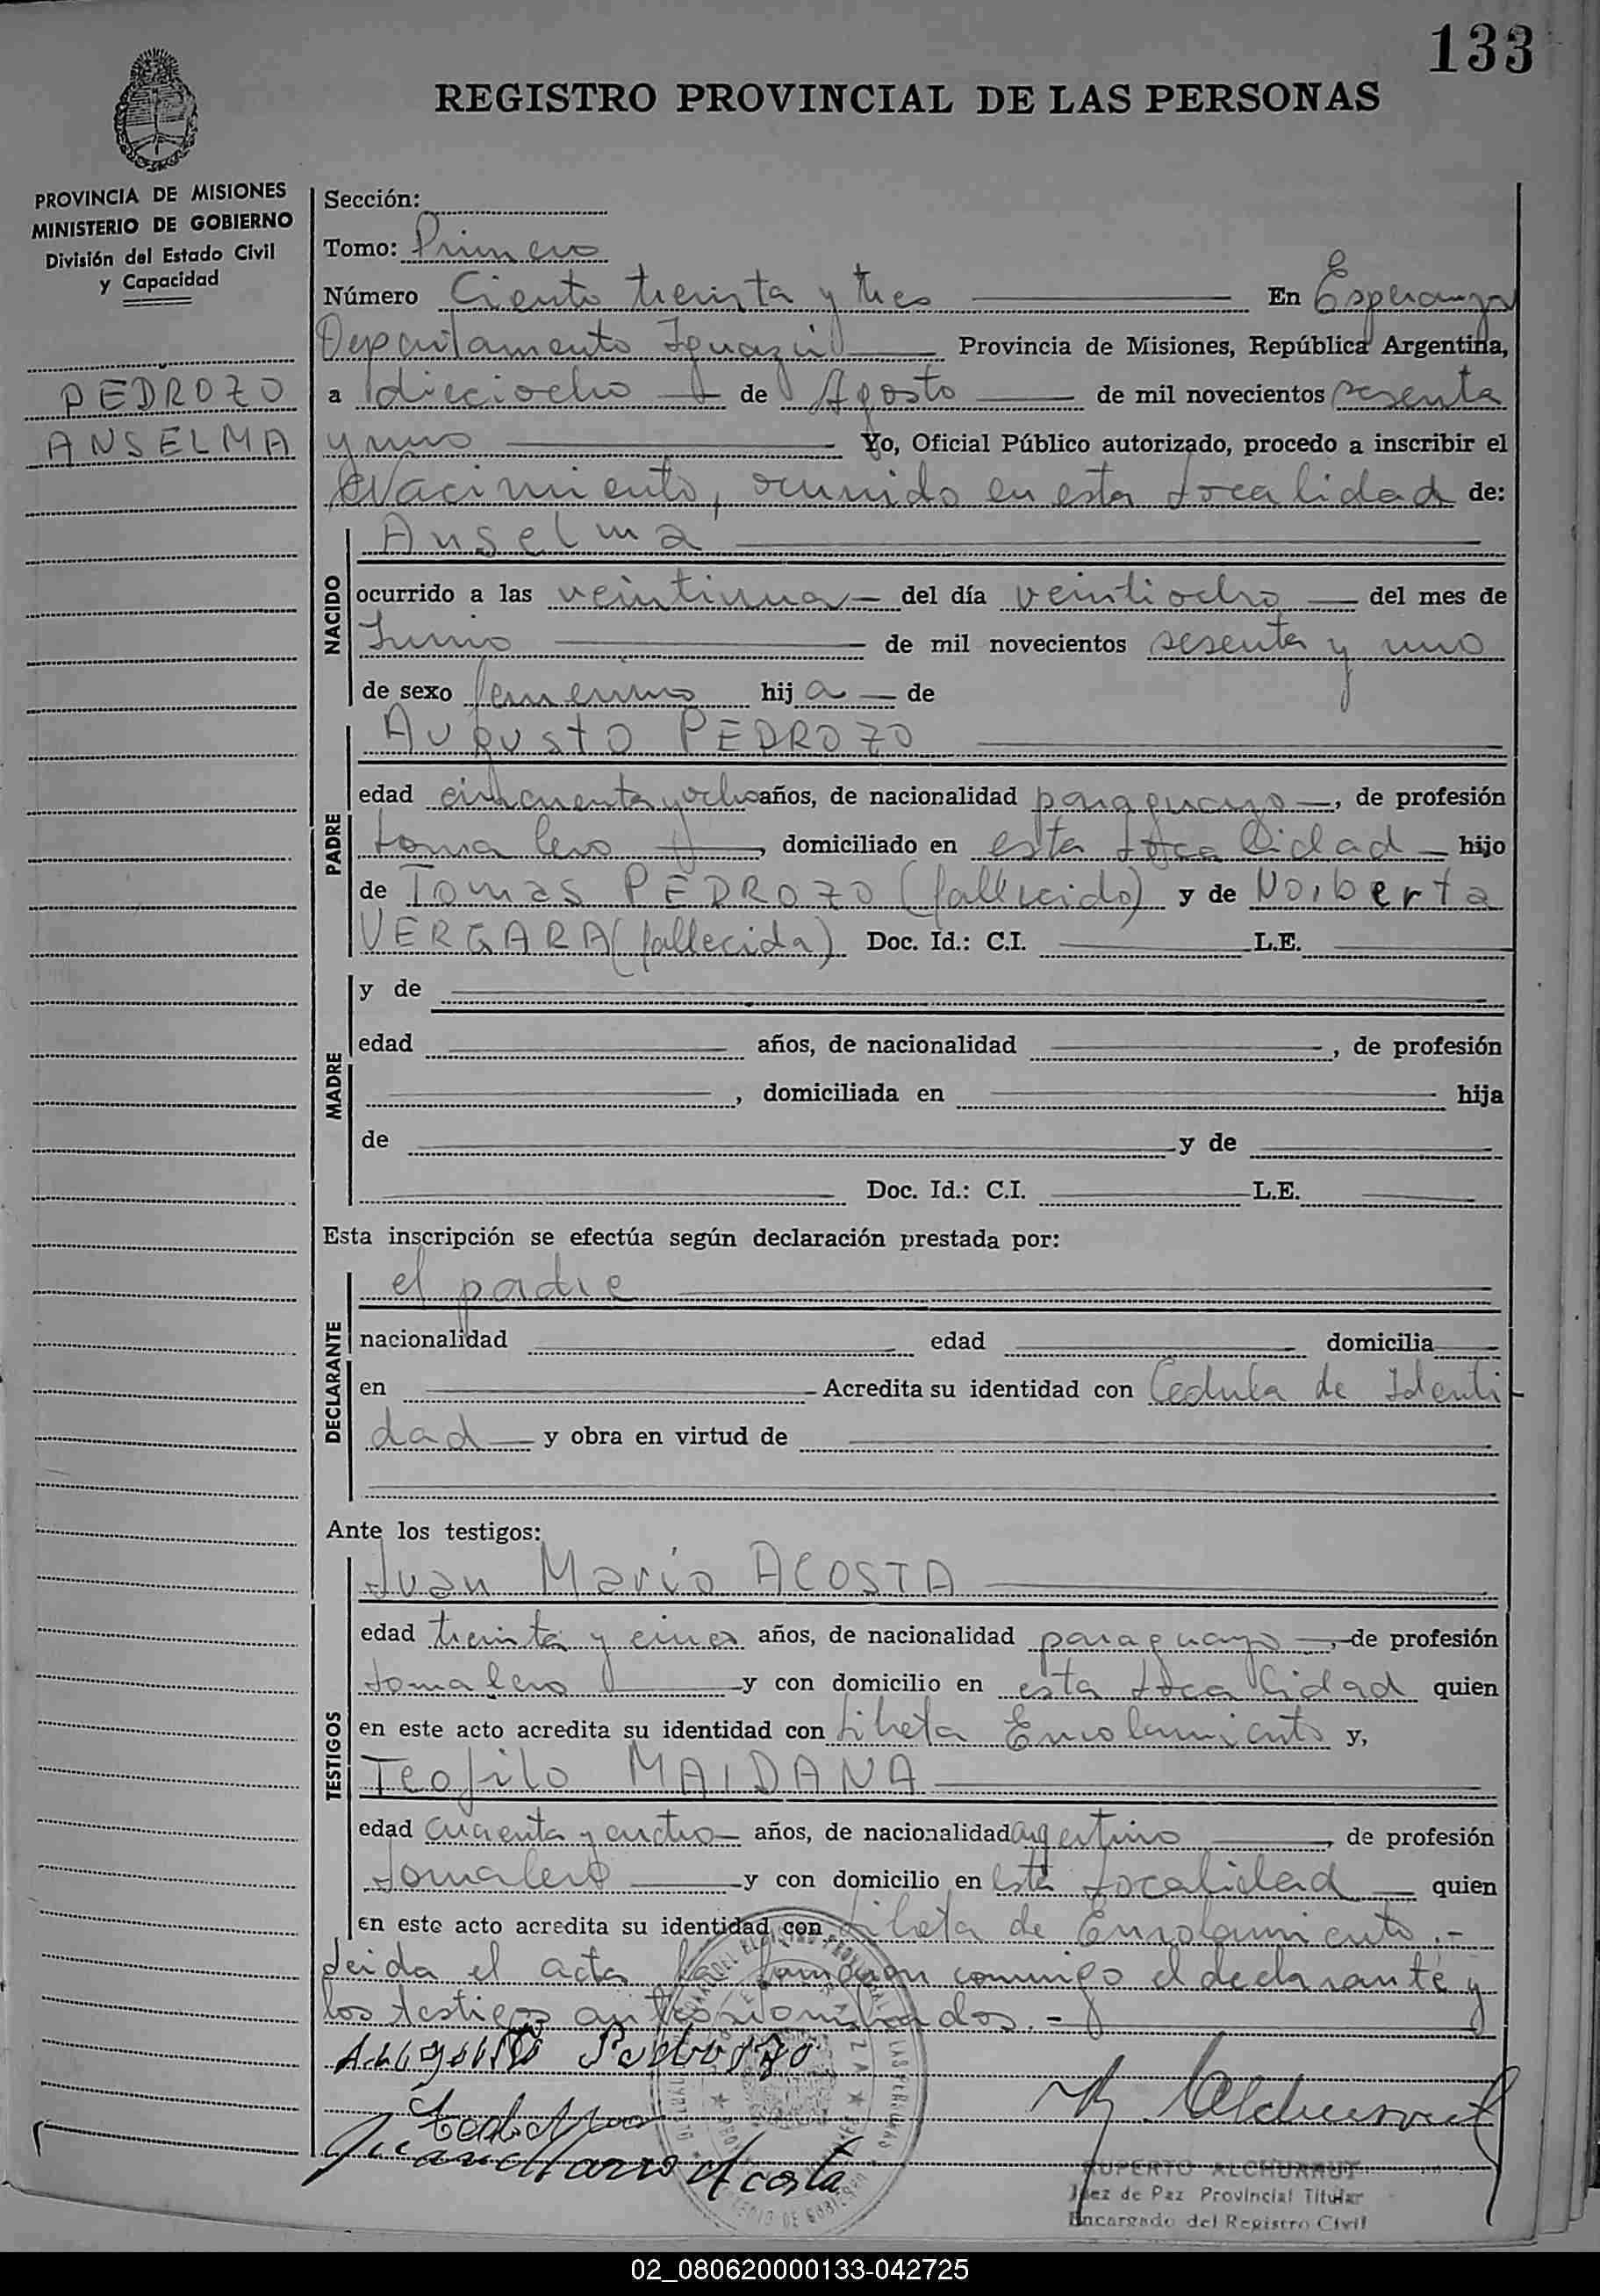 133
REGISTRO PROVINCIAL DE LAS PERSONAS
PROVINCIA DE MISIONES
MINISTERIO DE GOBIERNO
División del Estado Civil
y Capacidad
PEDROZO
ANSELMA
Sección:
Tomo: Primero
Número Ciento treinta y tres En Esperanza
Departamento Iguazú Provincia de Misiones, República Argentina,
a dieciocho de Agosto de mil novecientos sesenta
y uno Yo, Oficial Público autorizado, procedo a inscribir el
Nacimiento, ocurrido en esta Localidad de:
NACIDO
Anselma
ocurrido a las veintiuna del día veintiocho del mes de
Junio de mil novecientos sesenta y uno
de sexo femenino hij a de
PADRE
Augusto PEDROZO
edad cincuenta y ocho años, de nacionalidad paraguayo, de profesión
Jornalero, domiciliado en esta Localidad hijo
de Tomas PEDROZO (fallecido) y de Norberta
VERGARA (fallecida) Doc. Id.: C.I. L.E.
MADRE
y de
edad años, de nacionalidad , de profesión
, domiciliada en hija
de y de
Doc. Id.: C.I. L.E.
Esta inscripción se efectúa según declaración prestada por:
DECLARANTE
el padre
nacionalidad edad domicilia
en Acredita su identidad con Cedula de Identi
dad y obra en virtud de
Ante los testigos:
TESTIGOS
Juan Mario ACOSTA
edad treinta y cinco años, de nacionalidad paraguayo, de profesión
Jornalero y con domicilio en esta Localidad quien
en este acto acredita su identidad con Libreta Enrolamiento y,
Teofilo MAIDANA
edad cuarenta y cuatro años, de nacionalidad argentino, de profesión
Jornalero y con domicilio en esta Localidad quien
en este acto acredita su identidad con Libreta de Enrolamiento.-
Leida el acta la firmaron conmigo el declarante y
los testigos antes nombrados.-
Augusto Pedrozo
Juan Mario Acosta
RUPERTO ALCHURRUT
Juez de Paz Provincial Titular
Encargado del Registro Civil
02_080620000133-042725